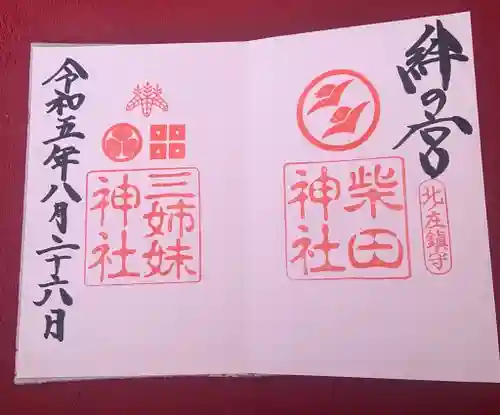 絆の宮
北庄鎮守
柴田
神社
三姉妹
神社
令和五年八月二十六日